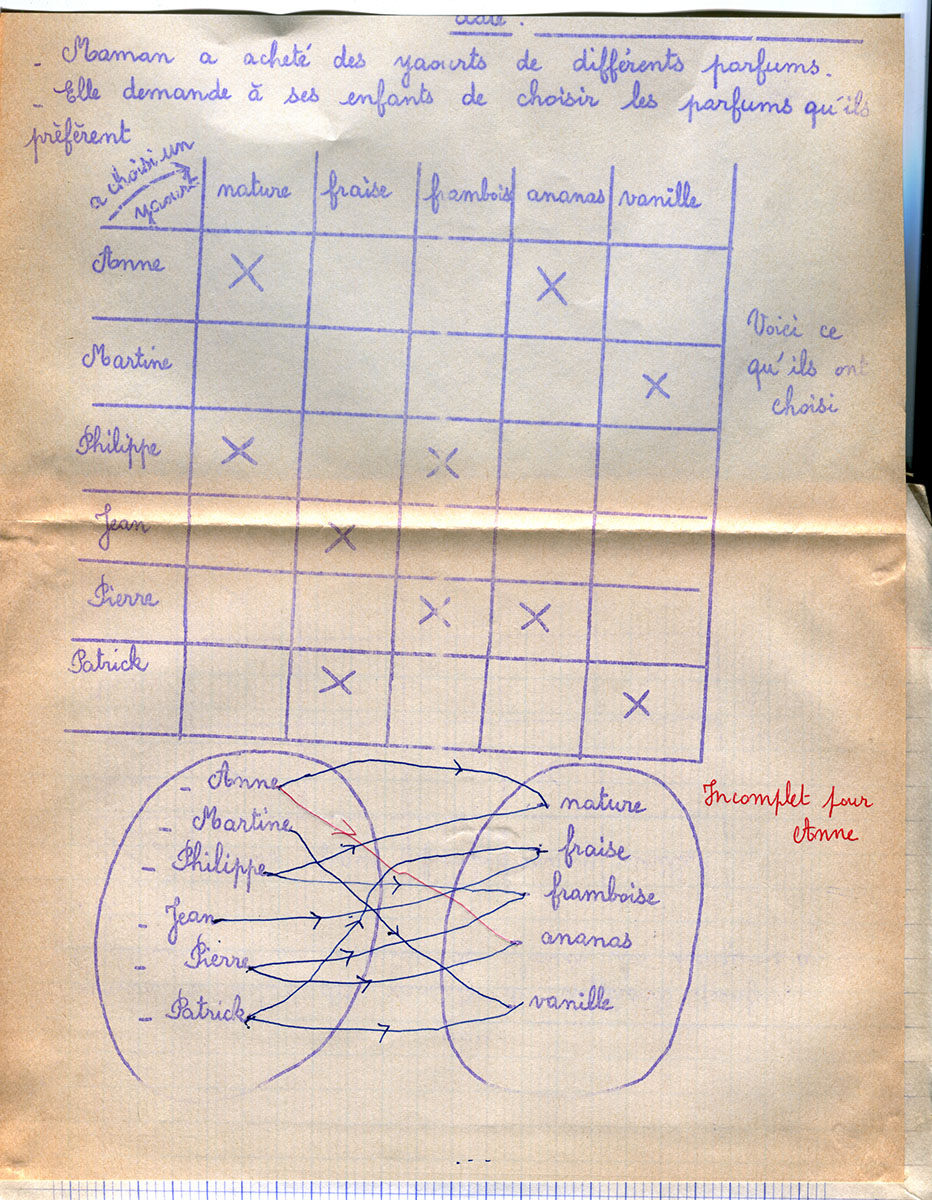 date :
- Maman a acheté des yaourts de différents parfums.
- Elle demande à ses enfants de choisir les parfums qu'ils
préfèrent
a choisi un
yaourt
nature fraise frambois ananas vanille
Anne X X
Martine X
Philippe X X
Jean X
Pierre X X
Patrick X X
Voici ce
qu'ils ont
choisi
- Anne
- Martine
- Philippe
- Jean
- Pierre
- Patrick
nature
fraise
framboise
ananas
vanille
Incomplet pour
Anne
...